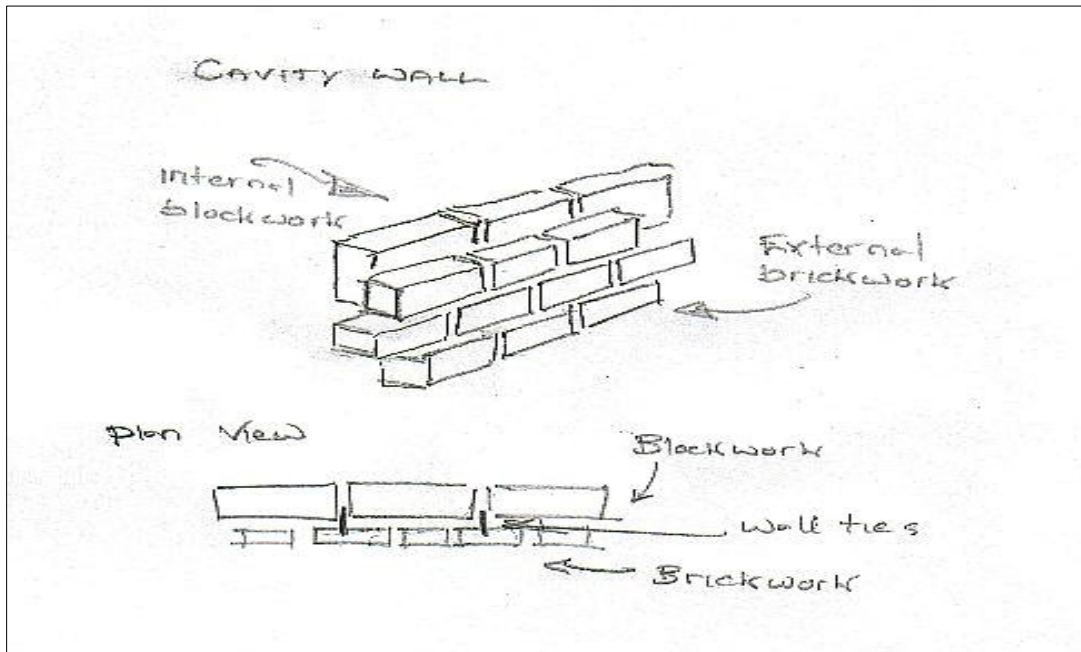 CAVITY WALL
Internal
blockwork
External
brickwork
plan view
Blockwork
Wall ties
Brickwork